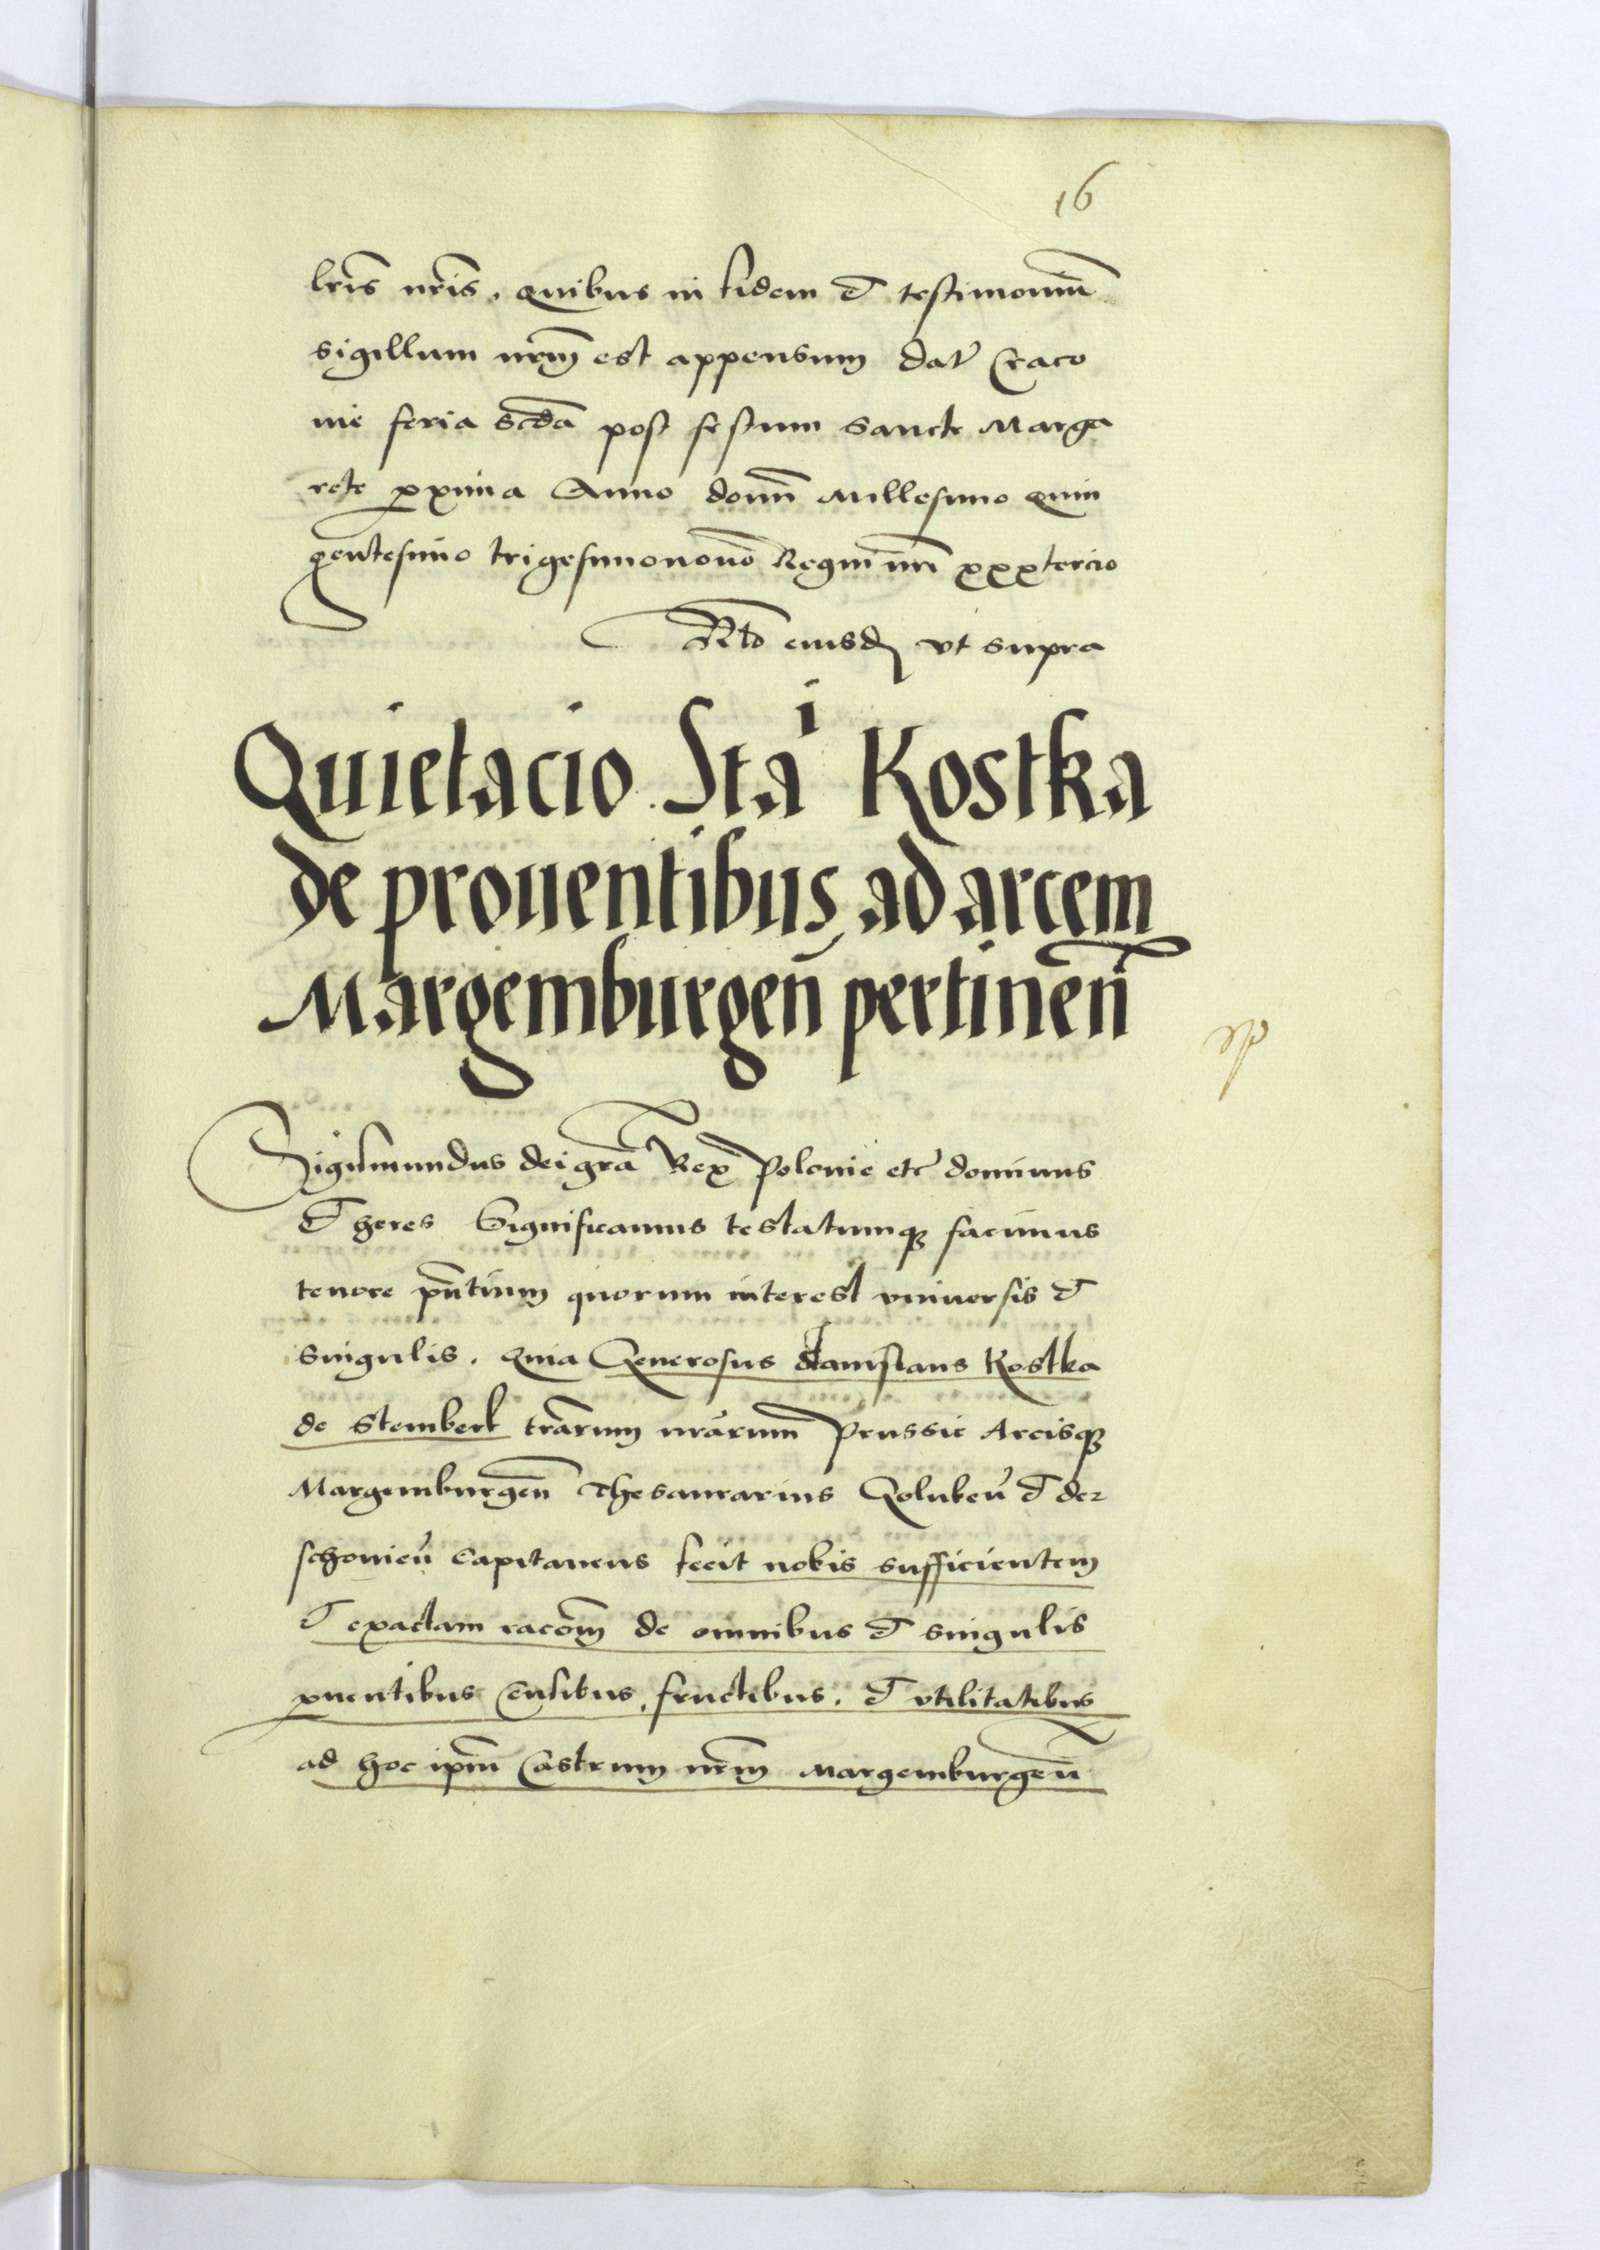 16
lris nris. quibus in fidem et testimoniu
sigillum nrm est appensum dat Craco
uie feria scda post festum Sancte Marga
rete pxima Anno domi Millesimo quin
gentesimo trigesimonono Regni nri xxxtercio
Rlo eiusd vt supra
Quietacio Stai Kostka
de prouentibus ad arcem
Margemburgen pertinen
Sigismundus dei gra Rex Polonie etc dominus
et heres Significamus testatumq facimus
tenore pntium quorum interest vniuersis et
singulis. quia Generosus Stanislaus Kostka
de Stemberk trarum nrarum Prussie Arcisq
Margemburgen Thesaurarius Goluben et der
schouien Capitaneus fecit nobis sufficientem
et exactam racom de omnibus et singulis
puentibus Censibus, fructibus. et vtilitatibus
ad hoc ipm Castrum nrm Margemburgen